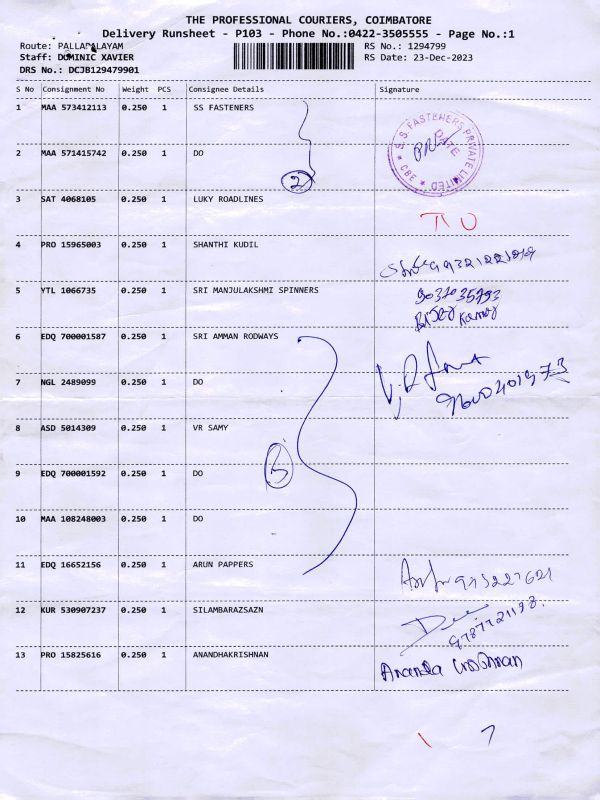 THE PROFESSIONAL COURIERS, COIMBATORE
Delivery Runsheet - P103 - Phone No.:0422-3505555 - Page No.:1
Route: PALLAPALAYAM
RS No.: 1294799
Staff: DOMINIC XAVIER
RS Date: 23-Dec-2023
DRS No.: DCJB129479901
S No Consignment No Weight PCS Consignee Details Signature
1 MAA 573412113 0.250 1 SS FASTENERS
S.S. FASTENERS PRIVATE LIMITED * CBE *
DATE
2 MAA 571415742 0.250 1 DO
2
3 SAT 4068105 0.250 1 LUKY ROADLINES
4 PRO 15965003 0.250 1 SHANTHI KUDIL
5 YTL 1066735 0.250 1 SRI MANJULAKSHMI SPINNERS
6 EDQ 700001587 0.250 1 SRI AMMAN RODWAYS
7 NGL 2489099 0.250 1 DO
8 ASD 5014309 0.250 1 VR SAMY
9 EDQ 700001592 0.250 1 DO
10 MAA 108248003 0.250 1 DO
11 EDQ 16652156 0.250 1 ARUN PAPPERS
12 KUR 530907237 0.250 1 SILAMBARAZSAZN
13 PRO 15825616 0.250 1 ANANDHAKRISHNAN